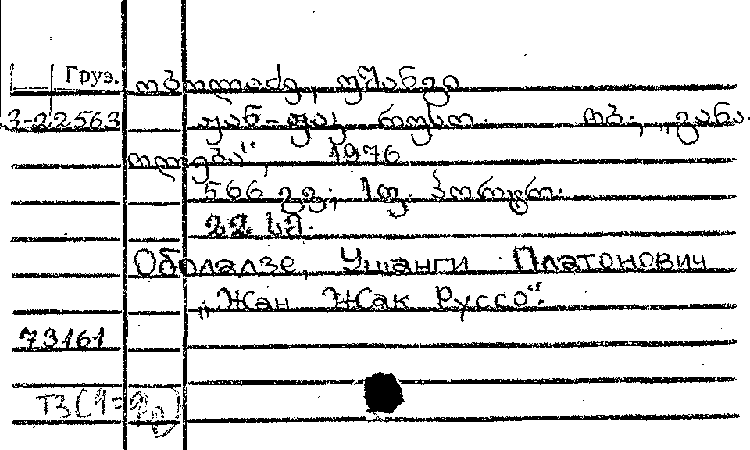 Груз. ობოლაძე, უშანგი
3-22563 ჟან-ჟაკ რუსო. თბ., „განა
თლება“, 1976
566 გვ; 1 ფ. პორტრ.
22 სმ.
Оболадзе, Ушанги Платонович
„Жан Жак Руссо“.
73161